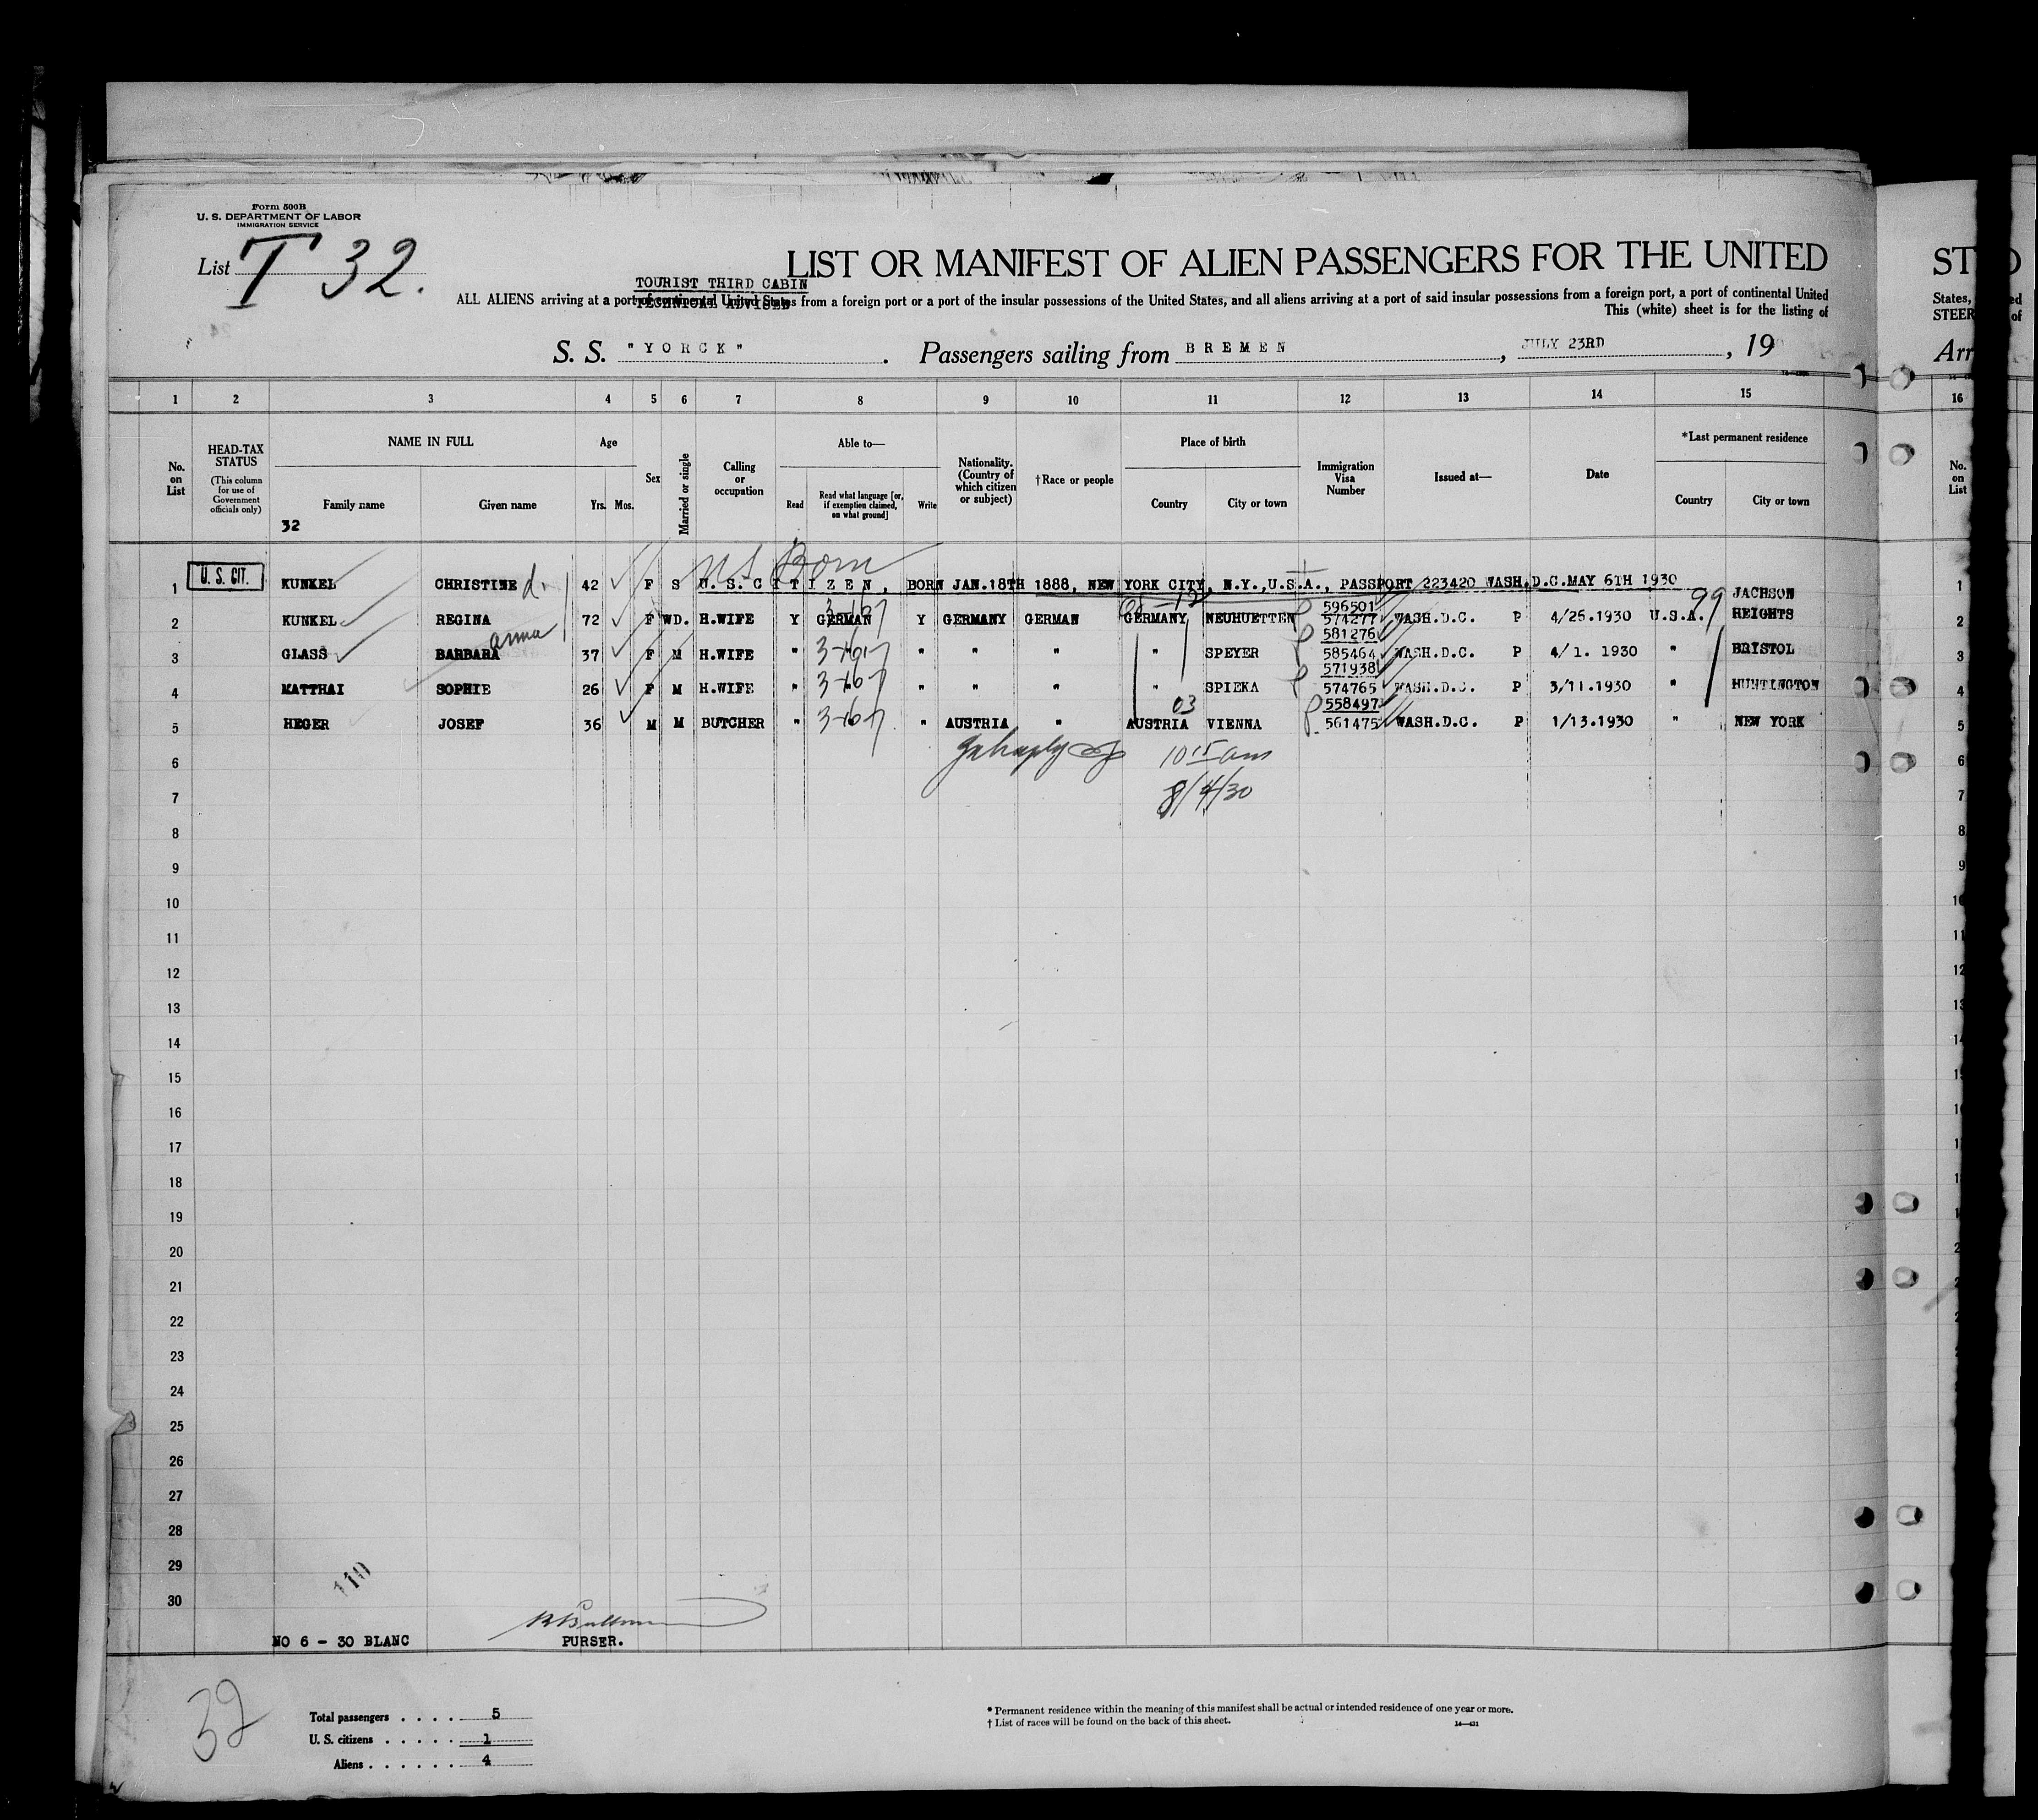 Form 500B
U. S. DEPARTMENT OF LABOR
IMMIGRATION SERVICE
List T 32.
LIST OR MANIFEST OF ALIEN PASSENGERS FOR THE UNITED
TOURIST THIRD CABIN
TECHNICAL ADVISED
ALL ALIENS arriving at a port of continental United States from a foreign port or a port of the insular possessions of the United States, and all aliens arriving at a port of said insular possessions from a foreign port, a port of continental United
This (white) sheet is for the listing of
S. S. "YORCK". Passengers sailing from BREMEN, JULY 23RD, 19
ST
States,
STEER
of
Arr
1 2 3 4 5 6 7 8 9 10 11 12 13 14 15 16
No. on List
HEAD-TAX STATUS (This column for use of Government officials only)
NAME IN FULL
Family name
Given name
32
Age
Yrs. Mos.
Sex
Married or single
Calling or occupation
Able to—
Read
Read what language [or, if exemption claimed, on what ground]
Write
Nationality. (Country of which citizen or subject)
†Race or people
Place of birth
Country
City or town
Immigration Visa Number
Issued at—
Date
*Last permanent residence
Country
City or town
No. on List
US Born
1 U. S. CIT. KUNKEL CHRISTINE 42 F S U.S.CITIZEN, BORN JAN.18TH 1888, NEW YORK CITY, N.Y.,U.S.A., PASSPORT 223420 WASH.D.C.MAY 6TH 1930 1
2 KUNKEL REGINA 72 F WD. H.WIFE Y GERMAN 3-167 Y GERMANY GERMAN GERMANY NEUHUETTEN 596501 574277 WASH.D.C. P 4/25.1930 U.S.A. 99 JACHSON HEIGHTS 2
3 GLASS BARBARA anna 37 F M H.WIFE " 3-167 " " " " SPEYER 581276 585464 WASH.D.C. P 4/1. 1930 " BRISTOL 3
4 MATTHAI SOPHIE 26 F M H.WIFE " 3-167 " " " " SPIEKA 571938 574765 WASH.D.C. P 3/11.1930 " HUNTINGTON 4
03
5 HEGER JOSEF 36 M M BUTCHER " 3-167 " AUSTRIA " AUSTRIA VIENNA 558497 561475 WASH.D.C. P 1/13.1930 " NEW YORK 5
6 10 15 am 6
7 8/4/30 7
8 8
9 9
10 10
11 11
12 12
13 13
14 14
15
16
17
18
19
20
21
22
23
24
25
26
27
28
29
30
110
NO 6 - 30 BLANC
PURSER.
32
Total passengers . . . . 5
U. S. citizens . . . . . 1
Aliens . . . . . . 4
* Permanent residence within the meaning of this manifest shall be actual or intended residence of one year or more.
† List of races will be found on the back of this sheet.